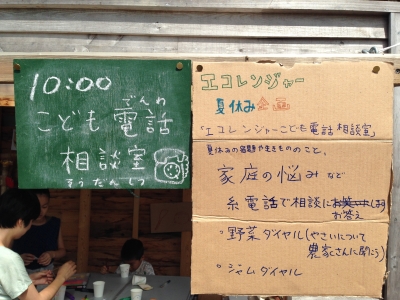 10:00
でんわ
こども電話
相談室
そうだんしつ
エコレンジャー
夏休み企画
「エコレンジャーこども電話相談室」
夏休みの宿題や生きもののこと、
家庭の悩みなど
糸電話で相談に
お答え
します
・野菜ダイヤル(やさいについて
農家さんに聞こう)
・ジャムダイヤル